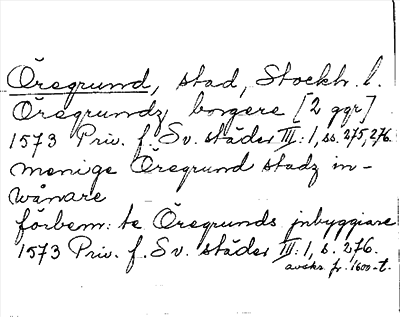 Öregrund, stad, Stockh. l.
Öregrundz borgere [2 ggr]
1573 Priv. f. Sv. städer III: 1, ss. 275, 276.
menige Öregrund stadz in-
wånare
förbem:te Öregrunds jnbyggiare
1573 Priv. f. Sv. städer III: 1, s. 276.
avskr. fr. 1600-t.